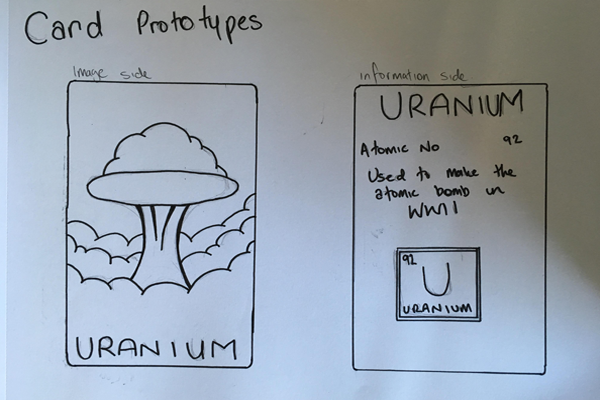 Card Prototypes
Image side
URANIUM
information side
URANIUM
Atomic No 92
Used to make the
atomic bomb in
WWII
92
U
URANIUM